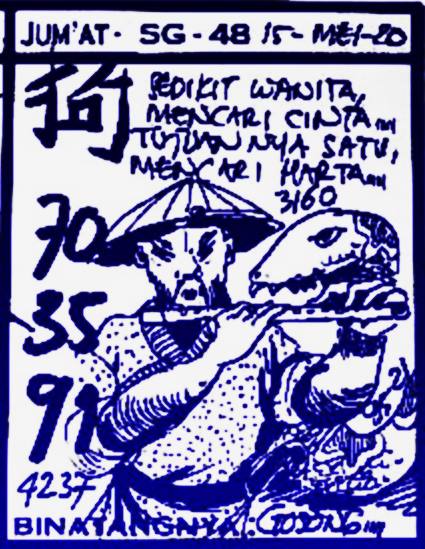 JUM'AT - SG - 48 15 - MEI - 20
狗
SEDIKIT WANITA,
MENCARI CINTA...
TUJUANNYA SATU,
MENCARI HARTA...
3160
70
35
91
4237
BINATANGNYA :